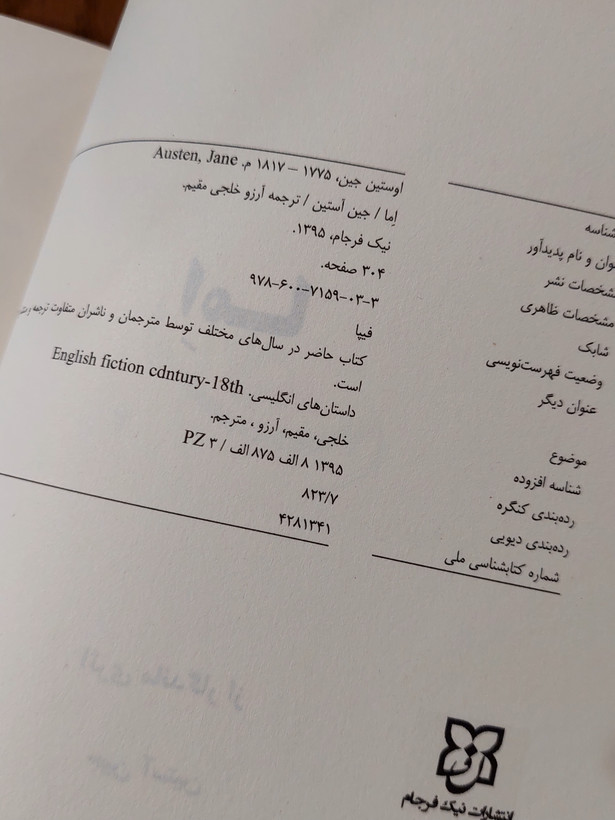 شناسه اوستین جین، ۱۷۷۵ – ۱۸۱۷ م. Austen, Jane
و نام پدیدآور اِما / جین آستین / ترجمه آرزو خلجی مقیم.
مشخصات نشر نیک فرجام، ۱۳۹۵.
مشخصات ظاهری ۳۰۴ صفحه.
شابک ۹۷۸-۶۰۰-۷۱۵۹-۰۳-۳
وضعیت فهرست‌نویسی فیپا
عنوان دیگر کتاب حاضر در سال‌های مختلف توسط مترجمان و ناشران متفاوت ترجمه
است.
موضوع داستان‌های انگلیسی. English fiction cdntury-18th
شناسه افزوده خلجی، مقیم، آرزو ، مترجم.
رده‌بندی کنگره ۱۳۹۵ ۸ الف ۸۷۵ الف / PZ ۳
رده‌بندی دیویی ۸۲۳/۷
شماره کتابشناسی ملی ۴۲۸۱۳۴۱
اِما
جین آستین
انتشارات نیک فرجام